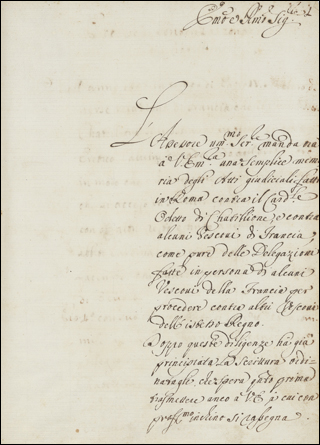 Em.o e R.mo Sig.re
L'Assessore um.mo Ser.re manda
à V. Em.za una semplice memo
ria degli Atti giudiciali fatti
in Roma contra il Card.le
Odetto di Chabtilione, e contra
alcuni Vescovi di Francia,
come pure delle Delegazioni
fatte in persona di alcuni
Vescovi della Francia per
procedere contra altri Vescovi
dell'istesso Regno.
Doppo queste diligenze ha già
principiata la Scrittura ordi
natagli, che spera quto prima
trasmettere anco a V.E., à cui con
prof.mo inchino si rassegna.